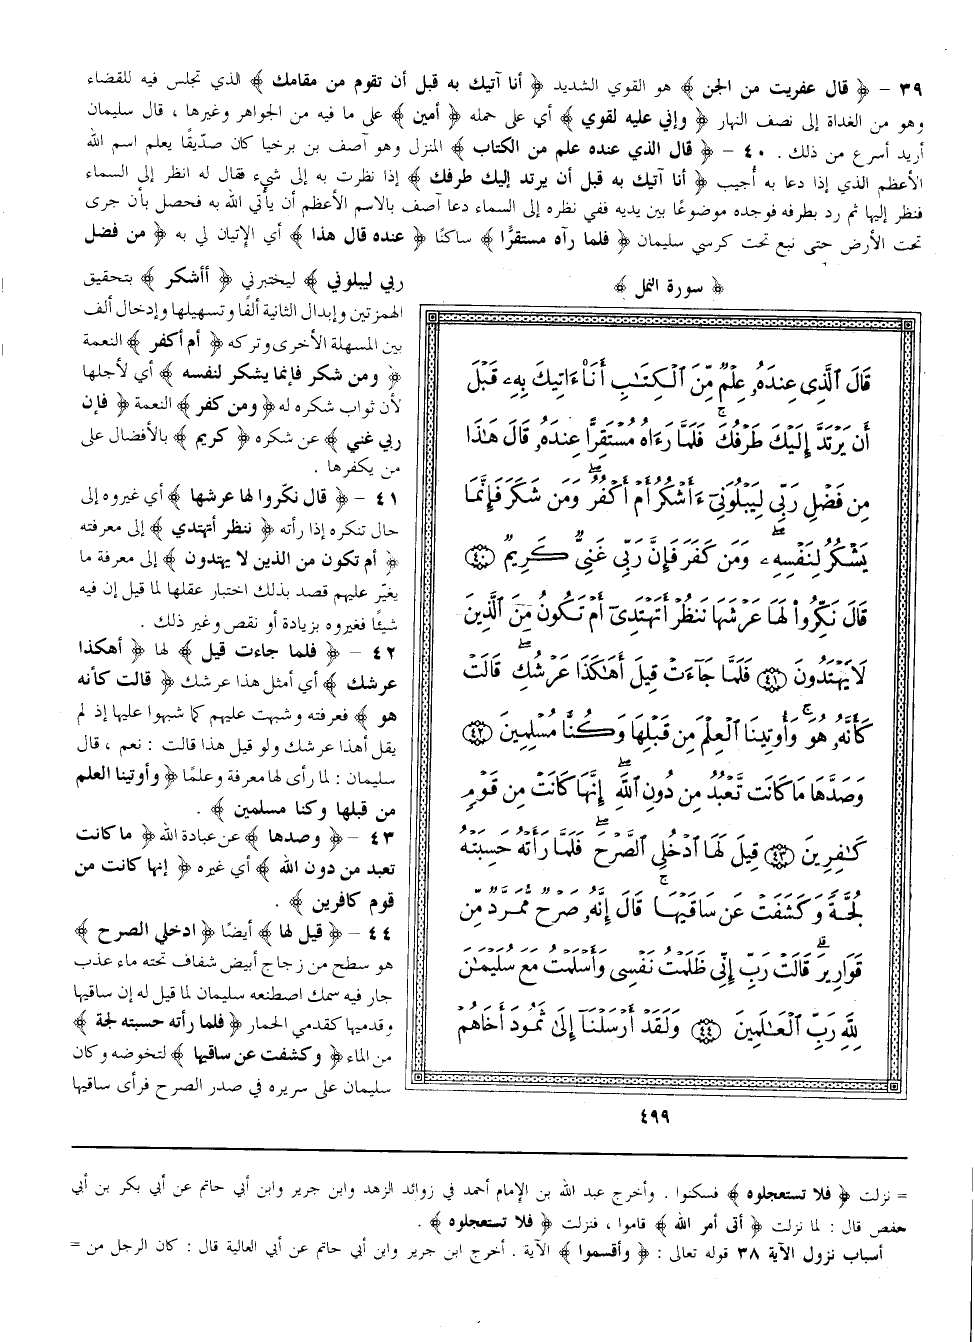 ٣٩ - ﴿ قال عفريت من الجن ﴾ هو القوي الشديد ﴿ أنا آتيك به قبل أن تقوم من مقامك ﴾ الذي تجلس فيه للقضاء
وهو من الغداة إلى نصف النهار ﴿ وإني عليه لقوي ﴾ أي على حمله ﴿ أمين ﴾ على ما فيه من الجواهر وغيرها ، قال سليمان
أريد أسرع من ذلك . ٤٠ - ﴿ قال الذي عنده علم من الكتاب ﴾ المنزل وهو آصف بن برخيا كان صدّيقًا يعلم اسم الله
الأعظم الذي إذا دعا به أُجيب ﴿ أنا آتيك به قبل أن يرتد إليك طرفك ﴾ إذا نظرت به إلى شيء فقال له انظر إلى السماء
فنظر إليها ثم رد بطرفه فوجده موضوعًا بين يديه ففي نظره إلى السماء دعا آصف بالاسم الأعظم أن يأتي الله به فحصل بأن جرى
تحت الأرض حتى نبع تحت كرسي سليمان ﴿ فلما رآه مستقرًّا ﴾ ساكنًا ﴿ عنده قال هذا ﴾ أي الإتيان لي به ﴿ من فضل
ربي ليبلوني ﴾ ليختبرني ﴿ أأشكر ﴾ بتحقيق
الهمزتين وإبدال الثانية ألفًا وتسهيلها وإدخال ألف
بين المسهلة الأخرى وتركه ﴿ أم أكفر ﴾ النعمة
﴿ ومن شكر فإنما يشكر لنفسه ﴾ أي لأجلها
لأن ثواب شكره له ﴿ ومن كفر ﴾ النعمة ﴿ فإن
ربي غني ﴾ عن شكره ﴿ كريم ﴾ بالأفضال على
من يكفرها .
٤١ - ﴿ قال نكّروا لها عرشها ﴾ أي غيروه إلى
حال تنكره إذا رأته ﴿ ننظر أتهتدي ﴾ إلى معرفته
﴿ أم تكون من الذين لا يهتدون ﴾ إلى معرفة ما
يغيّر عليهم قصد بذلك اختبار عقلها لما قيل إن فيه
شيئًا فغيروه بزيادة أو نقص وغير ذلك .
٤٢ - ﴿ فلما جاءت قيل ﴾ لها ﴿ أهكذا
عرشك ﴾ أي أمثل هذا عرشك ﴿ قالت كأنه
هو ﴾ فعرفته وشبهت عليهم كما شبهوا عليها إذ لم
يقل أهذا عرشك ولو قيل هذا قالت : نعم ، قال
سليمان : لما رأى لها معرفة وعلمًا ﴿ وأوتينا العلم
من قبلها وكنا مسلمين ﴾ .
٤٣ - ﴿ وصدها ﴾ عن عبادة الله ﴿ ما كانت
تعبد من دون الله ﴾ أي غيره ﴿ إنها كانت من
قوم كافرين ﴾ .
٤٤ - ﴿ قيل لها ﴾ أيضًا ﴿ ادخلي الصرح ﴾
هو سطح من زجاج أبيض شفاف تحته ماء عذب
جار فيه سمك اصطنعه سليمان لما قيل له إن ساقيها
وقدميها كقدمي الحمار ﴿ فلما رأته حسبته لجة ﴾
من الماء ﴿ وكشفت عن ساقيها ﴾ لتخوضه وكان
سليمان على سريره في صدر الصرح فرأى ساقيها
﴿ سورة النمل ﴾
قَالَ ٱلَّذِى عِندَهُۥ عِلْمٌ مِّنَ ٱلْكِتَٰبِ أَنَا۠ ءَاتِيكَ بِهِۦ قَبْلَ
أَن يَرْتَدَّ إِلَيْكَ طَرْفُكَ ۚ فَلَمَّا رَءَاهُ مُسْتَقِرًّا عِندَهُۥ قَالَ هَٰذَا
مِن فَضْلِ رَبِّى لِيَبْلُوَنِىٓ ءَأَشْكُرُ أَمْ أَكْفُرُ ۖ وَمَن شَكَرَ فَإِنَّمَا
يَشْكُرُ لِنَفْسِهِۦ ۖ وَمَن كَفَرَ فَإِنَّ رَبِّى غَنِىٌّ كَرِيمٌ ٤٠
قَالَ نَكِّرُوا۟ لَهَا عَرْشَهَا نَنظُرْ أَتَهْتَدِىٓ أَمْ تَكُونُ مِنَ ٱلَّذِينَ
لَا يَهْتَدُونَ ٤١ فَلَمَّا جَآءَتْ قِيلَ أَهَٰكَذَا عَرْشُكِ ۖ قَالَتْ
كَأَنَّهُۥ هُوَ ۚ وَأُوتِينَا ٱلْعِلْمَ مِن قَبْلِهَا وَكُنَّا مُسْلِمِينَ ٤٢
وَصَدَّهَا مَا كَانَت تَّعْبُدُ مِن دُونِ ٱللَّهِ ۖ إِنَّهَا كَانَتْ مِن قَوْمٍ
كَٰفِرِينَ ٤٣ قِيلَ لَهَا ٱدْخُلِى ٱلصَّرْحَ ۖ فَلَمَّا رَأَتْهُ حَسِبَتْهُ
لُجَّةً وَكَشَفَتْ عَن سَاقَيْهَا ۚ قَالَ إِنَّهُۥ صَرْحٌ مُّمَرَّدٌ مِّن
قَوَارِيرَ ۗ قَالَتْ رَبِّ إِنِّى ظَلَمْتُ نَفْسِى وَأَسْلَمْتُ مَعَ سُلَيْمَٰنَ
لِلَّهِ رَبِّ ٱلْعَٰلَمِينَ ٤٤ وَلَقَدْ أَرْسَلْنَآ إِلَىٰ ثَمُودَ أَخَاهُمْ
٤٩٩
= نزلت ﴿ فلا تستعجلوه ﴾ فسكنوا . وأخرج عبد الله بن الإمام أحمد في زوائد الزهد وابن جرير وابن أبي حاتم عن أبي بكر بن أبي
حفص قال : لما نزلت ﴿ أتى أمر الله ﴾ قاموا ، فنزلت ﴿ فلا تستعجلوه ﴾ .
أسباب نزول الآية ٣٨ قوله تعالى : ﴿ وأقسموا ﴾ الآية . أخرج ابن جرير وابن أبي حاتم عن أبي العالية قال : كان الرجل من =